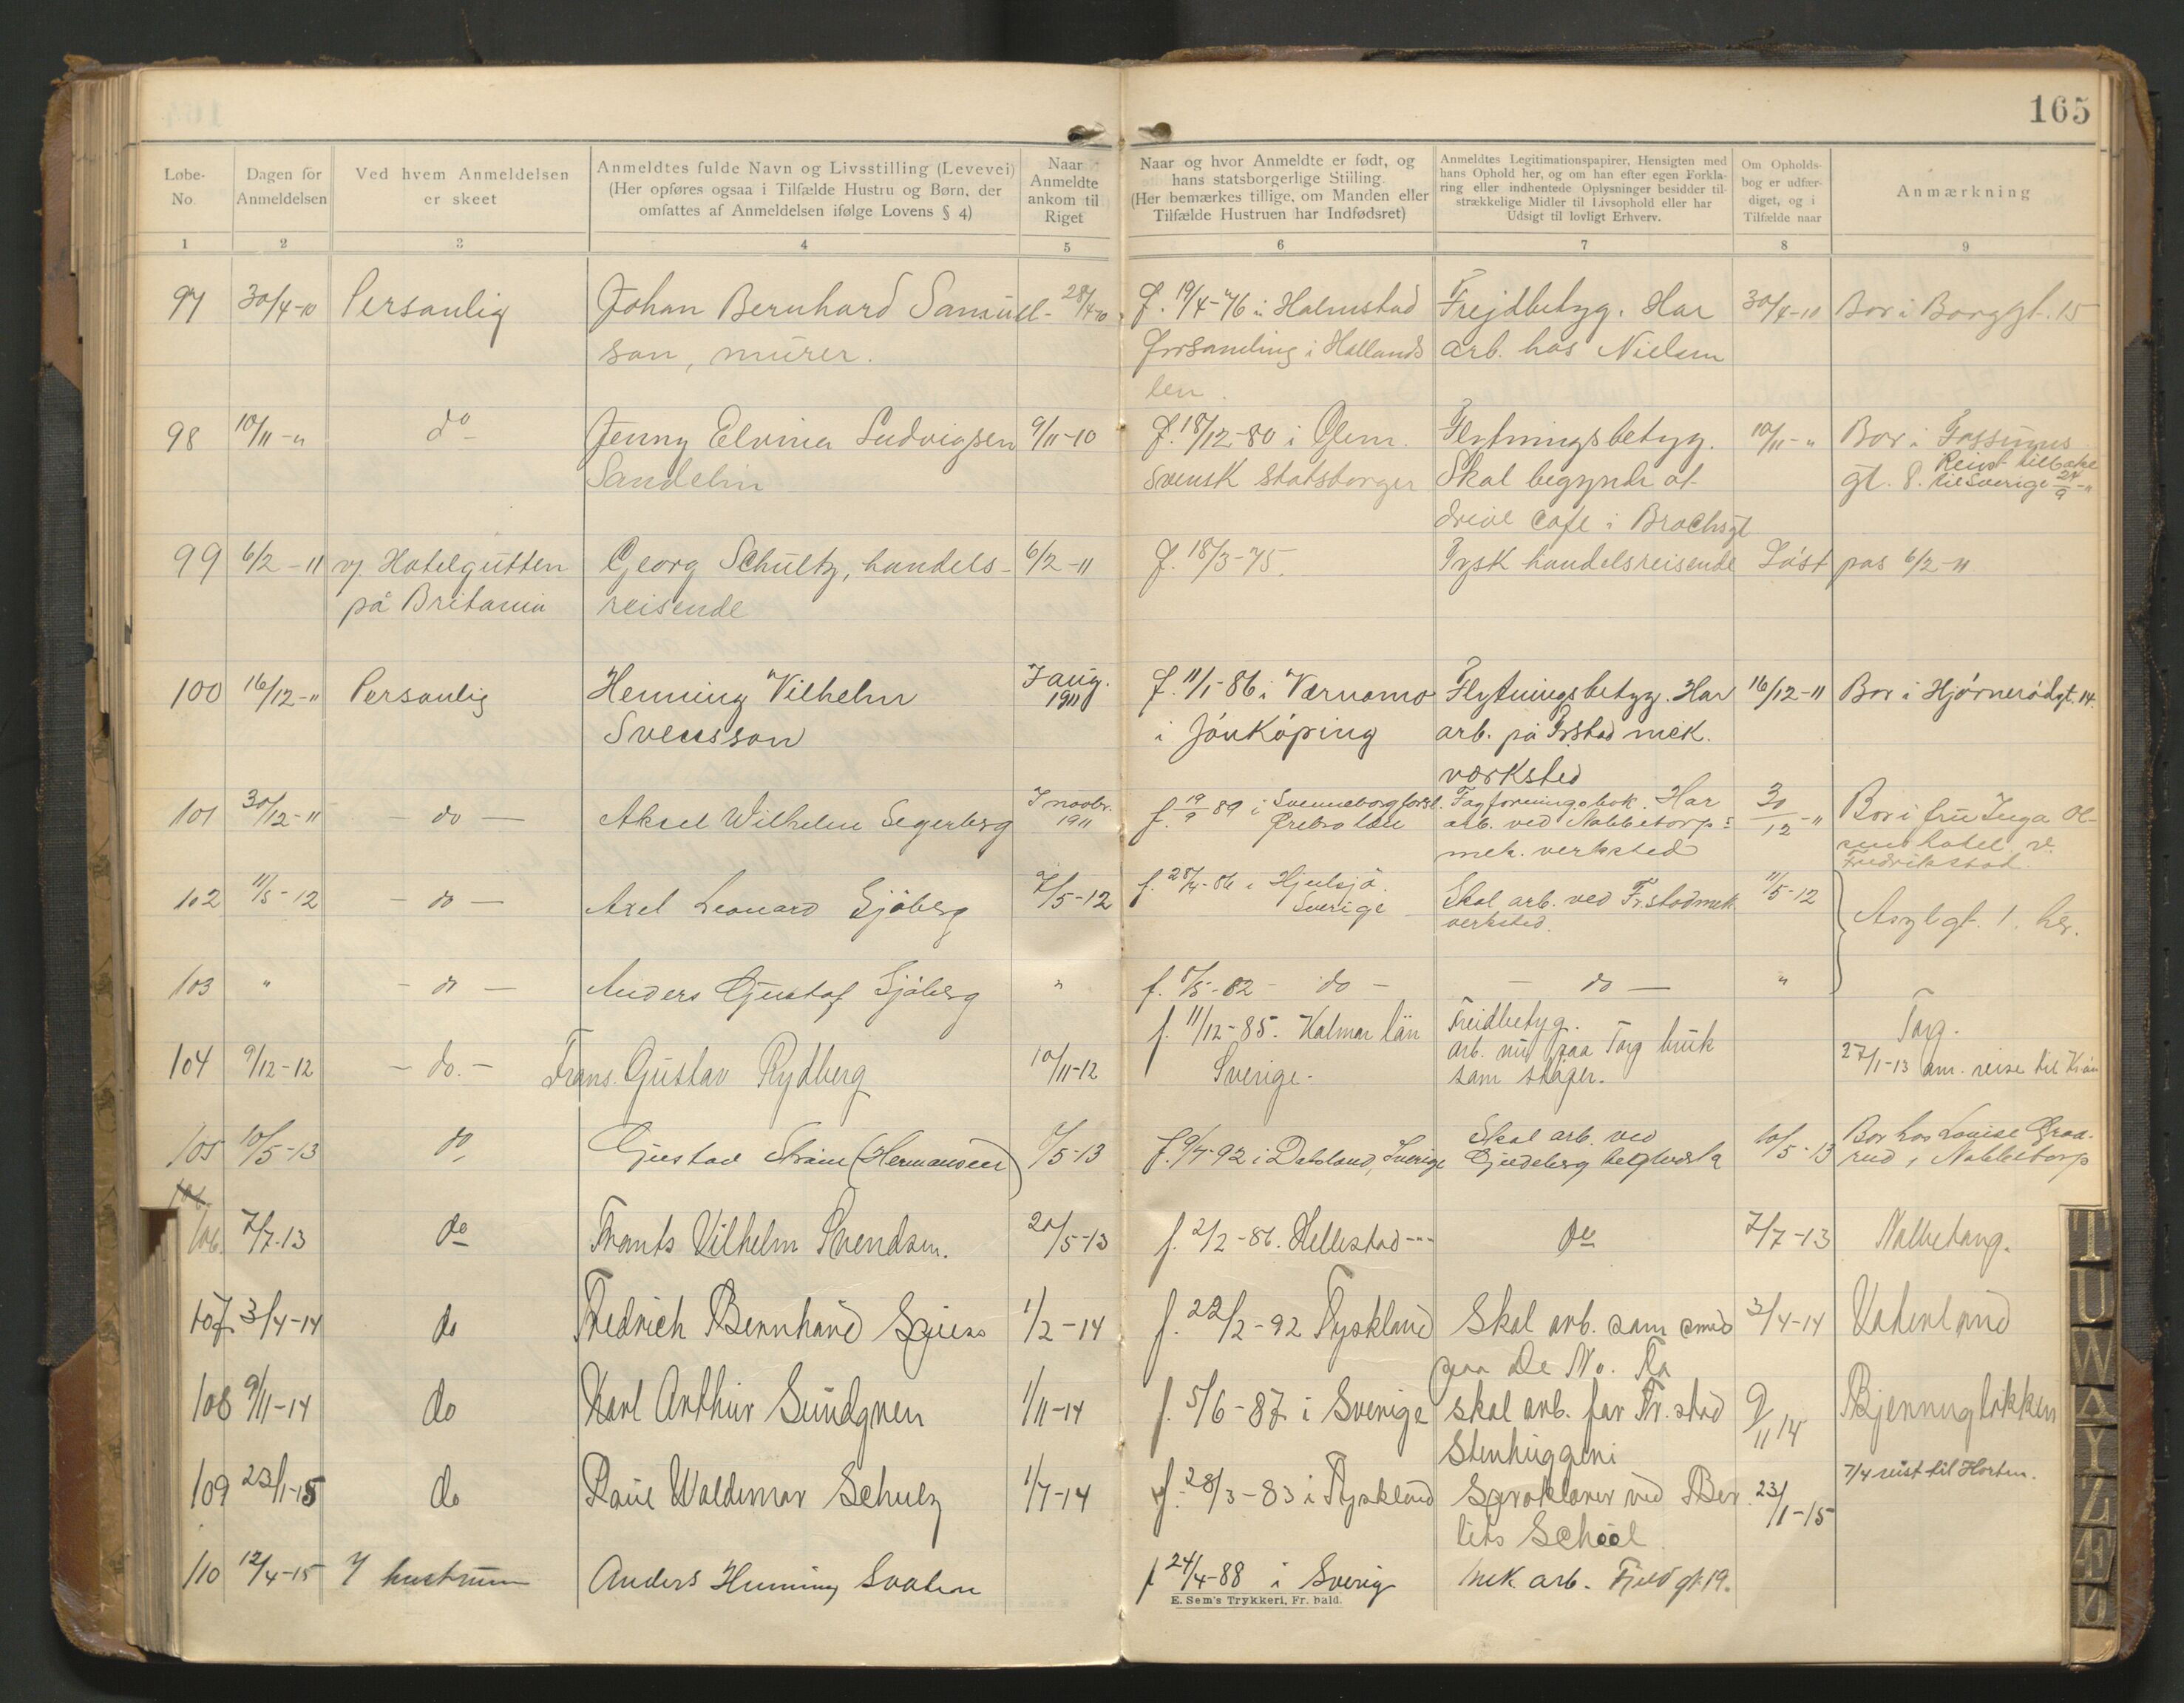 165
Løbe-
No.
Dagen for
Anmeldelsen
Ved hvem Anmeldelsen
er skeet
Anmeldtes fulde Navn og Livsstilling (Levevei)
(Her opføres ogsaa i Tilfælde Hustru og Børn, der
omfattes af Anmeldelsen ifølge Lovens § 4)
Naar
Anmeldte
ankom til
Riget
Naar og hvor Anmeldte er født, og
hans statsborgerlige Stilling.
(Her bemærkes tillige, om Manden eller
Tilfælde Hustruen har Indfødsret)
Anmeldtes Legitimationspapirer, Hensigten med
hans Ophold her, og om han efter egen Forkla-
ring eller indhentede Oplysninger besidder til-
strækkelige Midler til Livsophold eller har
Udsigt til lovligt Erhverv.
Om Opholds-
bog er udfær-
diget, og i
Tilfælde naar
Anmærkning
1 2 3 4 5 6 7 8 9
97 30/4-10 Personlig Johan Bernhard Samuel- 28/4-10 f. 19/4-76 i Halmstad Frejdbetyg. Har 30/4-10 Bor i Borggt. 15
son, murer. forsamling i Hallands arb. hos Nielsen
len.
98 10/11-" do Jenny Elvina Ludvigsen 9/11-10 f. 18/12-80 i Glem. Flytningsbetyg. 10/11-" Bor i Fossums
Sandelin svensk statsborger Skal begynde at gt. 8. Reist tilbake
til Sverige 24/9-"
drive cafe i Brochsgt
99 6/2-11 v/ Hotelgutten Georg Schultz, handels- 6/2-11 f. 18/3-75. Tysk handelsreisende Løst pas 6/2-11
på Britania reisende
100 16/12-" Personlig Henning Vilhelm I aug. f. 11/1-86 i Værnamo Flytningsbetyg. Har 16/12-11 Bor i Hjørnerødgt. 14.
Svensson 1911 i Jönköping arb. på Frstad mek.
værksted
101 30/12-" - do - Aksel Wilhelm Segerberg I novbr. 1911 f. 19/9 89 i Svenneborg forsl. Fagforeningsbok. Har 30/12-" Bor i fru Inga Ol-
Ørebro län arb. ved Nabbetorps sens hotel v.
mek. verksted Fredrikstad.
102 11/5-12 - do - Axel Leonard Sjöberg 7/5-12 f. 28/4-86 i Hjulsjö. Skal arb. ved Fr.stad mek 11/5-12 Asylgt. 1. her.
Sverige verksted.
103 " - do - Anders Gustaf Sjöberg " f. 5/5-82 - do - - do - "
f. 11/12-85. Kalmar län Freidbetyg. Torp.
104 9/12-12 - do. - Frans Gustav Rydberg 10/11-12 Sverige. arb. nu paa Torp bruk 27/1-13 am. reise til Kr.a
som støper.
105 10/5-13 do Gustav Strøm (Hermansen) 7/5-13 f. 9/7-92 i Dalsland, Sverige Skal arb. ved 10/5-13 Bor hos Louise Graa-
Gudeberg teglverk rud, Nabbetorp
106
106. 7/7-13 do Frants Vilhelm Svendsen. 20/5-13 f. 2/2-86. Hellestad --- do 7/7-13 Nabbetang.
107. 3/4-14 do Fredrich Bernhard Spiess 1/2-14 f. 22/2-92 Tyskland Skal arb. som smed 3/4-14 Vaterland
paa De No. Fa
108 9/11-14 do Karl Arthur Sundgren 1/11-14 f. 5/6-87 i Sverige skal arb. for Fr.stad 9/11 14 Bjerringløkken
Stenhuggeri
109 23/1-15 do Paul Waldemar Schulz 1/7-14 f. 28/3-83 i Tyskland Sproklærer ved Ber 23/1-15 7/4 reist til Horten.
lits School
110 12/4-15 v/ hustruen Anders Henning Svahn f 24/4-88 i Sverig mek. arb. Fjeldgt 19.
E. Sem's Trykkeri, Fr. hald.
T
U
W
X
Y
Z
Æ
Ø